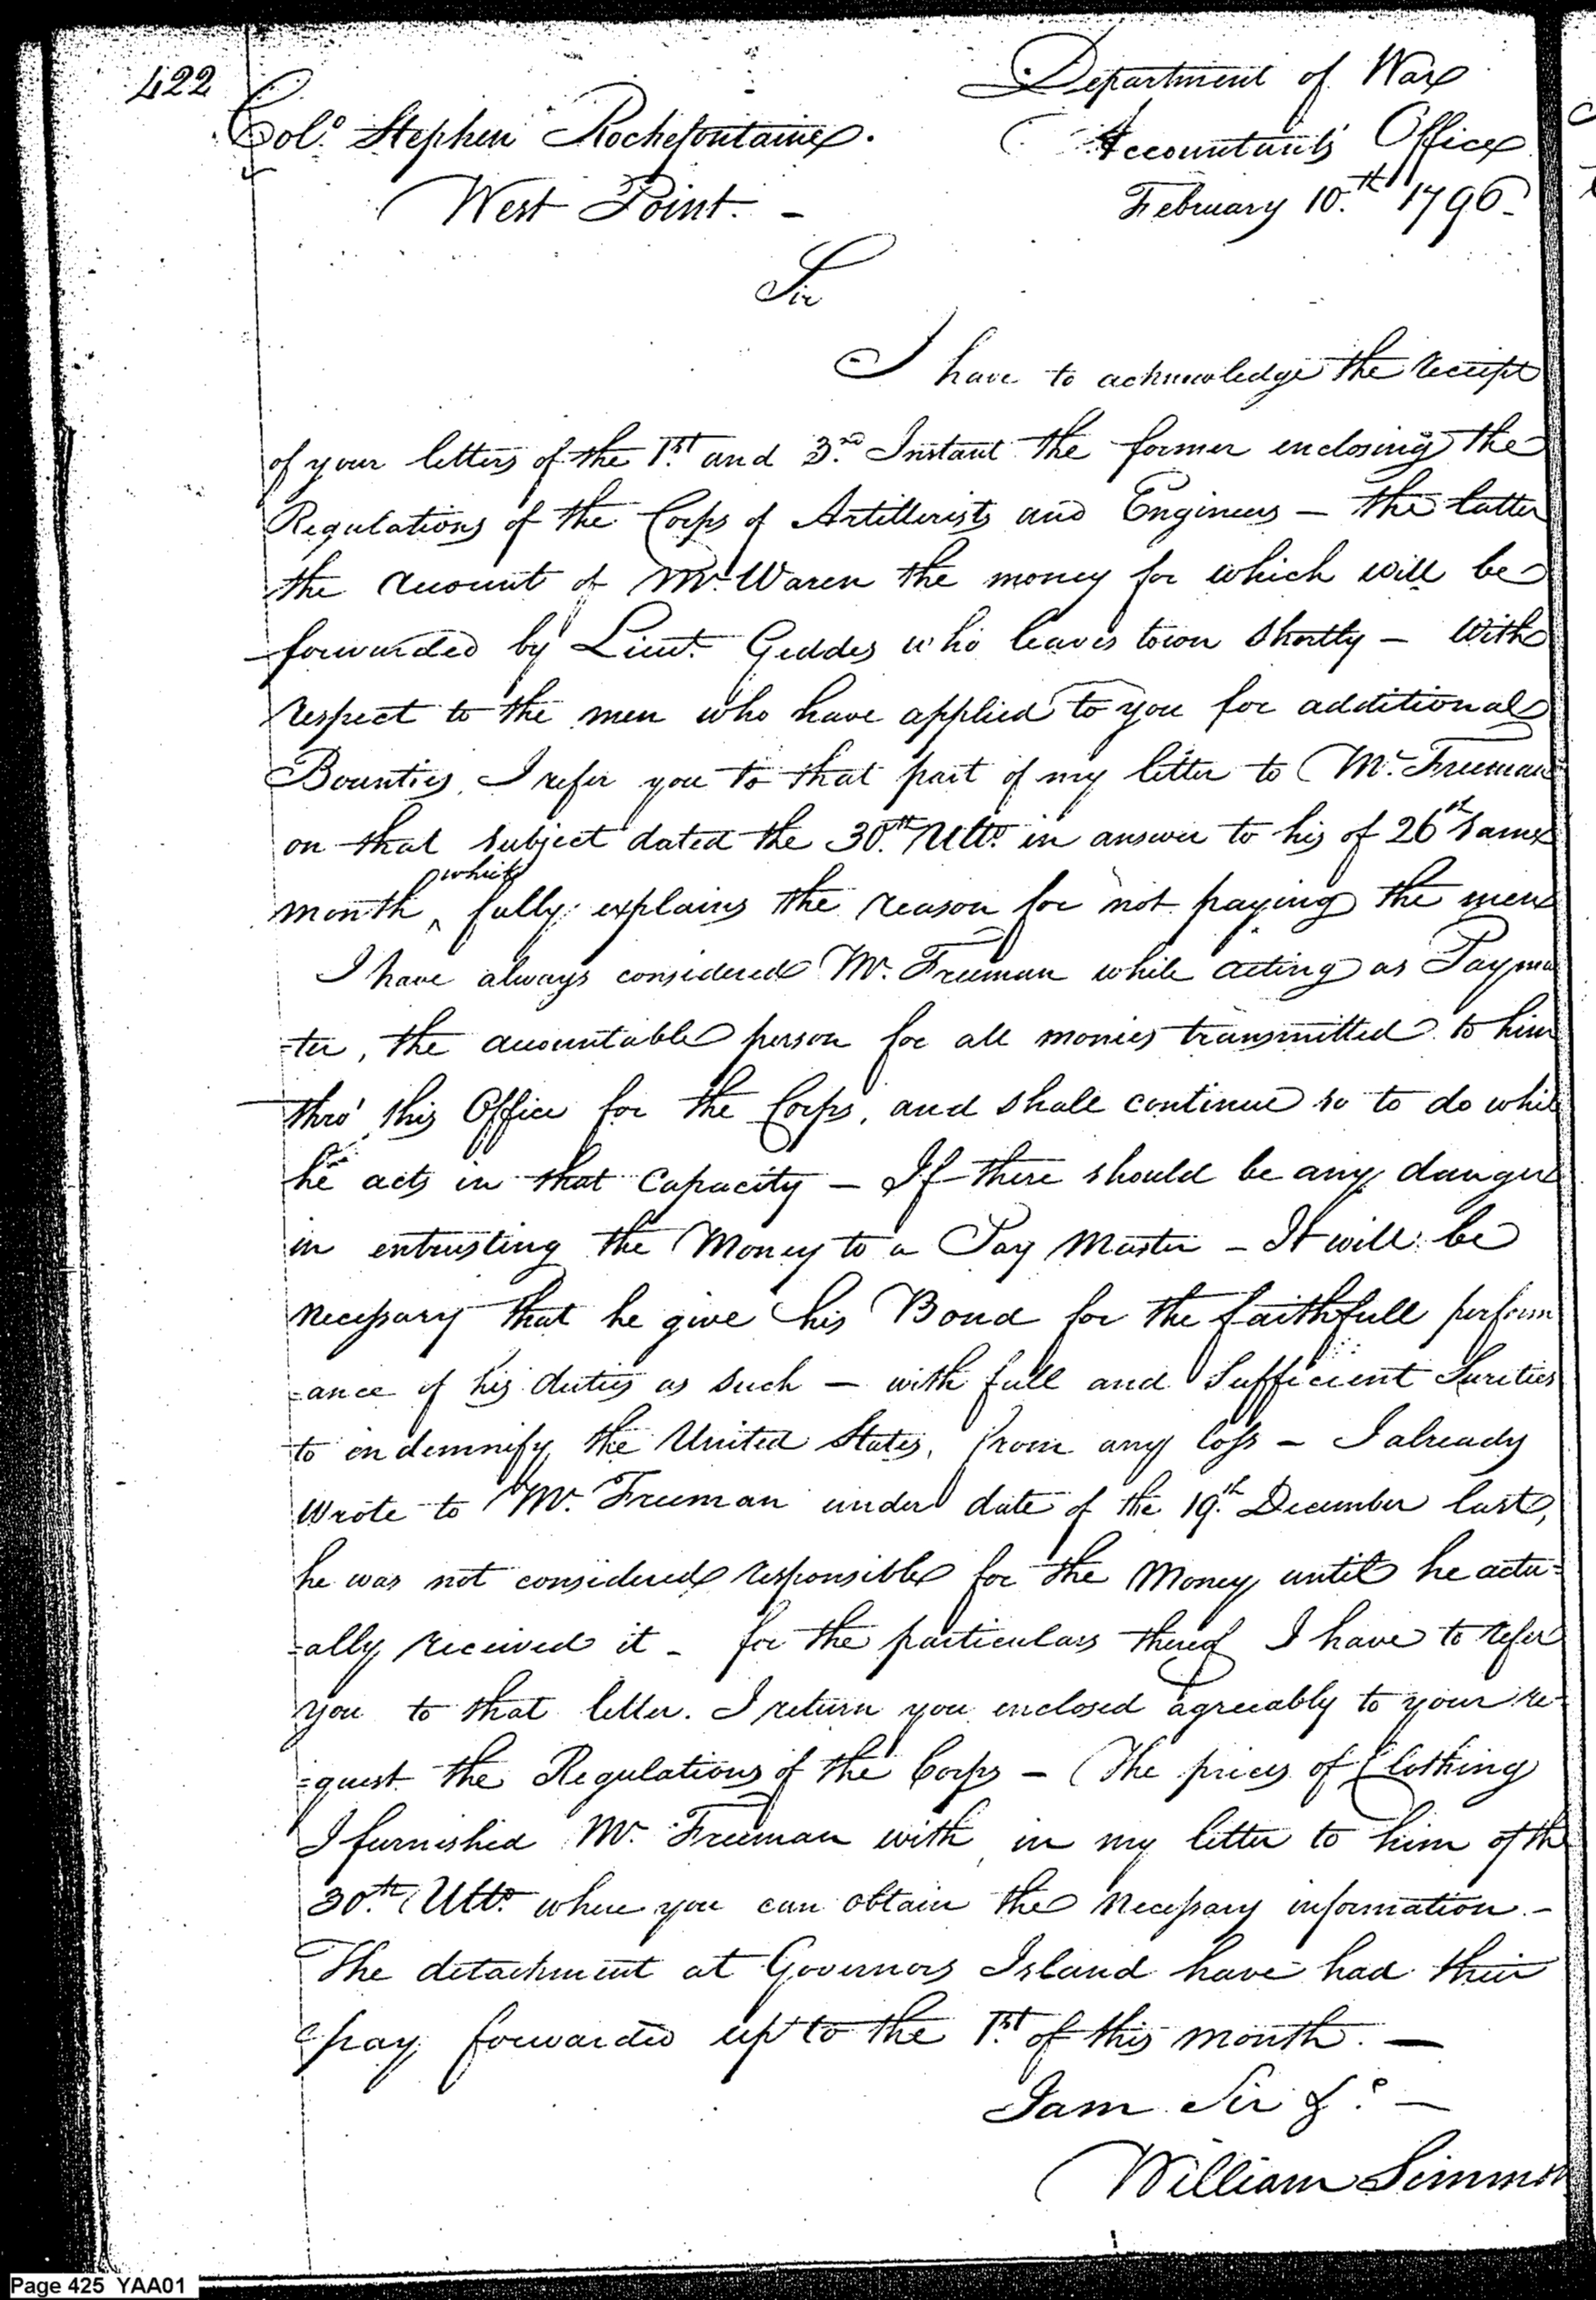 422
Department of War
Col.º Stephen Rochefontaine.
Accountant's Office
West Point. -
February 10.th 1796.
Sir
I have to acknowledge the receipt
of your letters of the 1.st and 3.rd Instant the former enclosing the
Regulations of the Corps of Artillerists and Engineers - the latter
the account of Mr. Waren the money for which will be
forwarded by Lieut. Geddes who leaves town shortly - With
respect to the men who have applied to you for additional
Bounties, I refer you to that part of my letter to Mr. Freeman
on that subject dated the 30.th Ulto. in answer to his of 26th same
month ^which fully explains the reason for not paying the men
I have always considered Mr. Freeman while acting as Payma
-ter, the accountable person for all monies transmitted to him
thro' this Office for the Corps, and shall continue so to do while
he acts in that Capacity - If there should be any danger
in entrusting the Money to a Pay Master - It will be
necessary that he give his Bond for the faithfull perform
-ance of his duties as such - with full and Sufficient Surities
to indemnify the United States, from any loss - I already
wrote to Mr. Freeman under date of the 19.th December last,
he was not considered responsible for the Money until he actu=
=ally received it - for the particulars thereof I have to refer
you to that letter. I return you enclosed agreeably to your re-
=quest the Regulations of the Corps - The prices of Clothing
I furnished Mr. Freeman with in my letter to him of the
30.th Ulto. where you can obtain the necessary information. -
The detachment at Governors Island have had their
pay forwarded up to the 1.st of this month. -
I am Sir &c. -
William Simmon
Page 425 YAA01